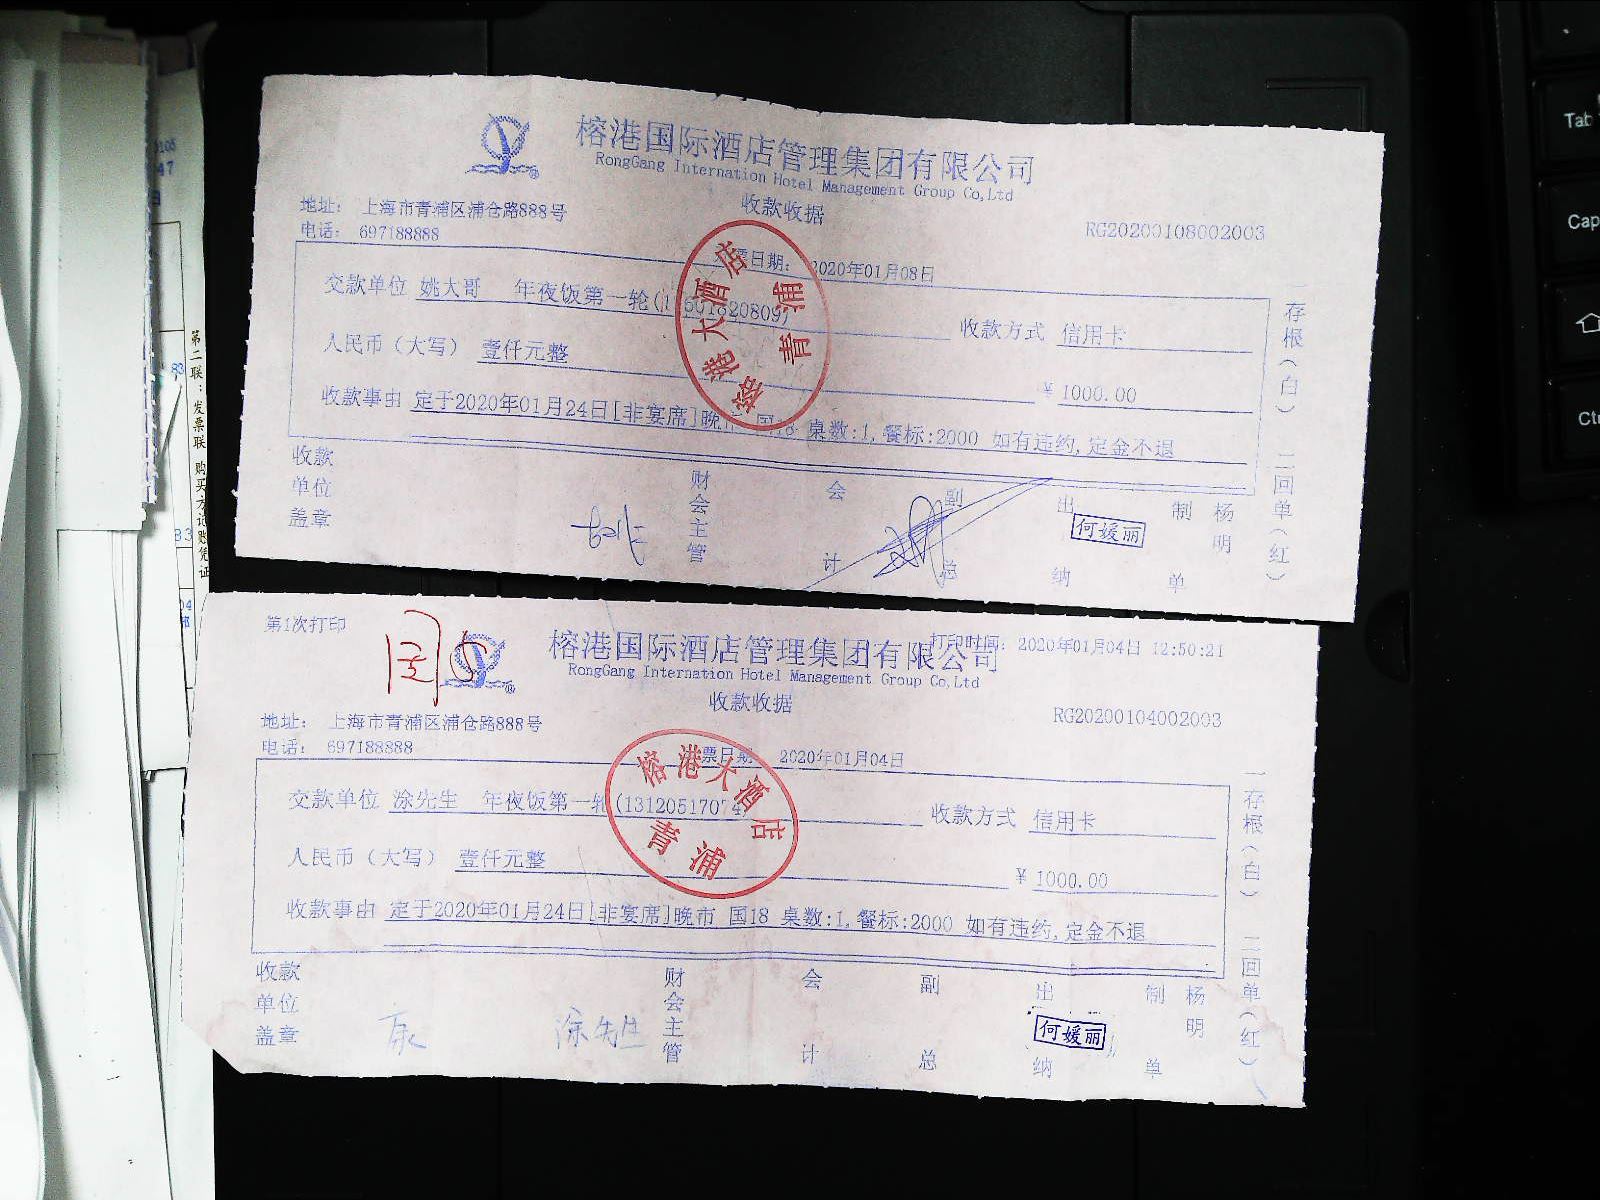 榕港国际酒店管理集团有限公司
RongGang Internation Hotel Management Group Co,Ltd
收款收据
地址： 上海市青浦区浦仓路888号
电话： 697188888
RG20200108002003
票日期： 2020年01月08日
交款单位 姚大哥 年夜饭第一轮(15618820809) 收款方式 信用卡
人民币（大写） 壹仟元整 ￥ 1000.00
收款事由 定于2020年01月24日[非宴席]晚市 国18 桌数:1,餐标:2000 如有违约,定金不退
收款单位盖章 财会主管 会计 副总 出纳 何媛丽 制单 杨明
一存根（白） 二回单（红）
榕港大酒店
青浦
第1次打印
国5
打印时间： 2020年01月04日 12:50:21
榕港国际酒店管理集团有限公司
RongGang Internation Hotel Management Group Co,Ltd
收款收据
地址： 上海市青浦区浦仓路888号
电话： 697188888
RG20200104002003
票日期 2020年01月04日
交款单位 涂先生 年夜饭第一轮(13120517074) 收款方式 信用卡
人民币（大写） 壹仟元整 ￥ 1000.00
收款事由 定于2020年01月24日[非宴席]晚市 国18 桌数:1,餐标:2000 如有违约,定金不退
收款单位盖章 涂先生 财会主管 会计 副总 出纳 何媛丽 制单 杨明
一存根（白） 二回单（红）
榕港大酒店
青浦
第二联：发票联 购买方记账凭证
Tab
Cap